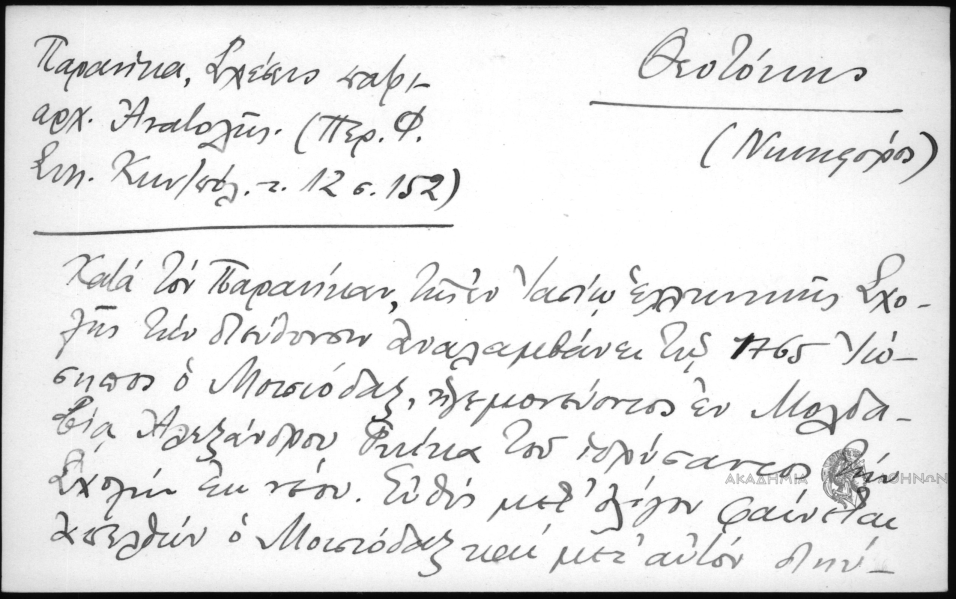 Παρανίκα, Σχέσεις πατρι-
αρχ. Ἀνατολῆς. (Περ. Φ.
Συλ. Κων/πόλ. τ. 12 σ. 152)
Θεοτόκης
(Νικηφόρος)
Κατά τόν Παρανίκαν, τῆς ἐν Ἰασίῳ ἑλληνικῆς Σχο-
λῆς τήν διεύθυνσιν ἀναλαμβάνει τῷ 1765 Ἰώ-
σηπος ὁ Μοισιόδαξ, ἡγεμονεύοντος ἐν Μολδα-
βίᾳ Ἀλεξάνδρου Γκίκα τοῦ ἱδρύσαντος τήν
Σχολήν ἐκ νέου. Εὐθύς μετ' ὀλίγον φαίνεται
ἀπελθών ὁ Μοισιόδαξ καί μετ' αὐτόν διηύ-
ΑΚΑΔΗΜΙΑ ΑΘΗΝΩΝ